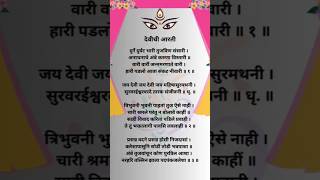 देवीची आरती
दुर्गे दुर्घट भारी तुजविण संसारी ।
अनाथनाथे अंबे करुणा विस्तारी ।
वारी वारी जन्ममरणाते वारी ।
हारी पडलो आता संकट नीवारी ॥ १ ॥
जय देवी जय देवी जय महिषासुरमथनी ।
सुरवरईश्वरवरदे तारक संजीवनी ॥ धृ. ॥
त्रिभुवनी भुवनी पाहता तुज ऐसे नाही ।
चारी श्रमले परंतु न बोलवे काही ।
साही विवाद करिता पडिले प्रवाही ।
ते तू भक्तालागी पावसि लवलाही ॥ २ ॥
प्रसन्न वदने प्रसन्न होसी निजदासां ।
क्लेशापासूनि सोडी तोडी भवपाशा ।
अंबे तुजवांचून कोण पुरविल आशा ।
नरहरि तल्लिन झाला पदपंकजलेशा ॥ ३ ॥
हारी पडलो
जय देवी जय
सुरवरईश्वर
त्रिभुवनी भु
चारी श्रम